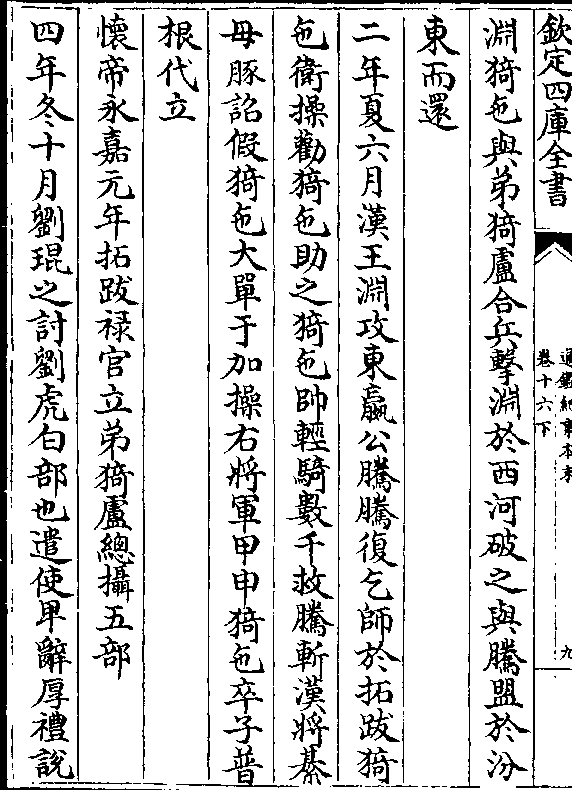 欽定四庫全書
通鑑紀事本末
卷十六下
九
淵猗㐌與弟猗盧合兵擊淵於西河破之與騰盟於汾
東而還
二年夏六月漢王淵攻東嬴公騰騰復乞師於拓跋猗
㐌衛操勸猗㐌助之猗㐌帥輕騎數千救騰斬漢將綦
毋豚詔假猗㐌大單于加操右將軍甲申猗㐌卒子普
根代立
懷帝永嘉元年拓跋禄官立弟猗盧總攝五部
四年冬十月劉琨之討劉虎白部也遣使卑辭厚禮說